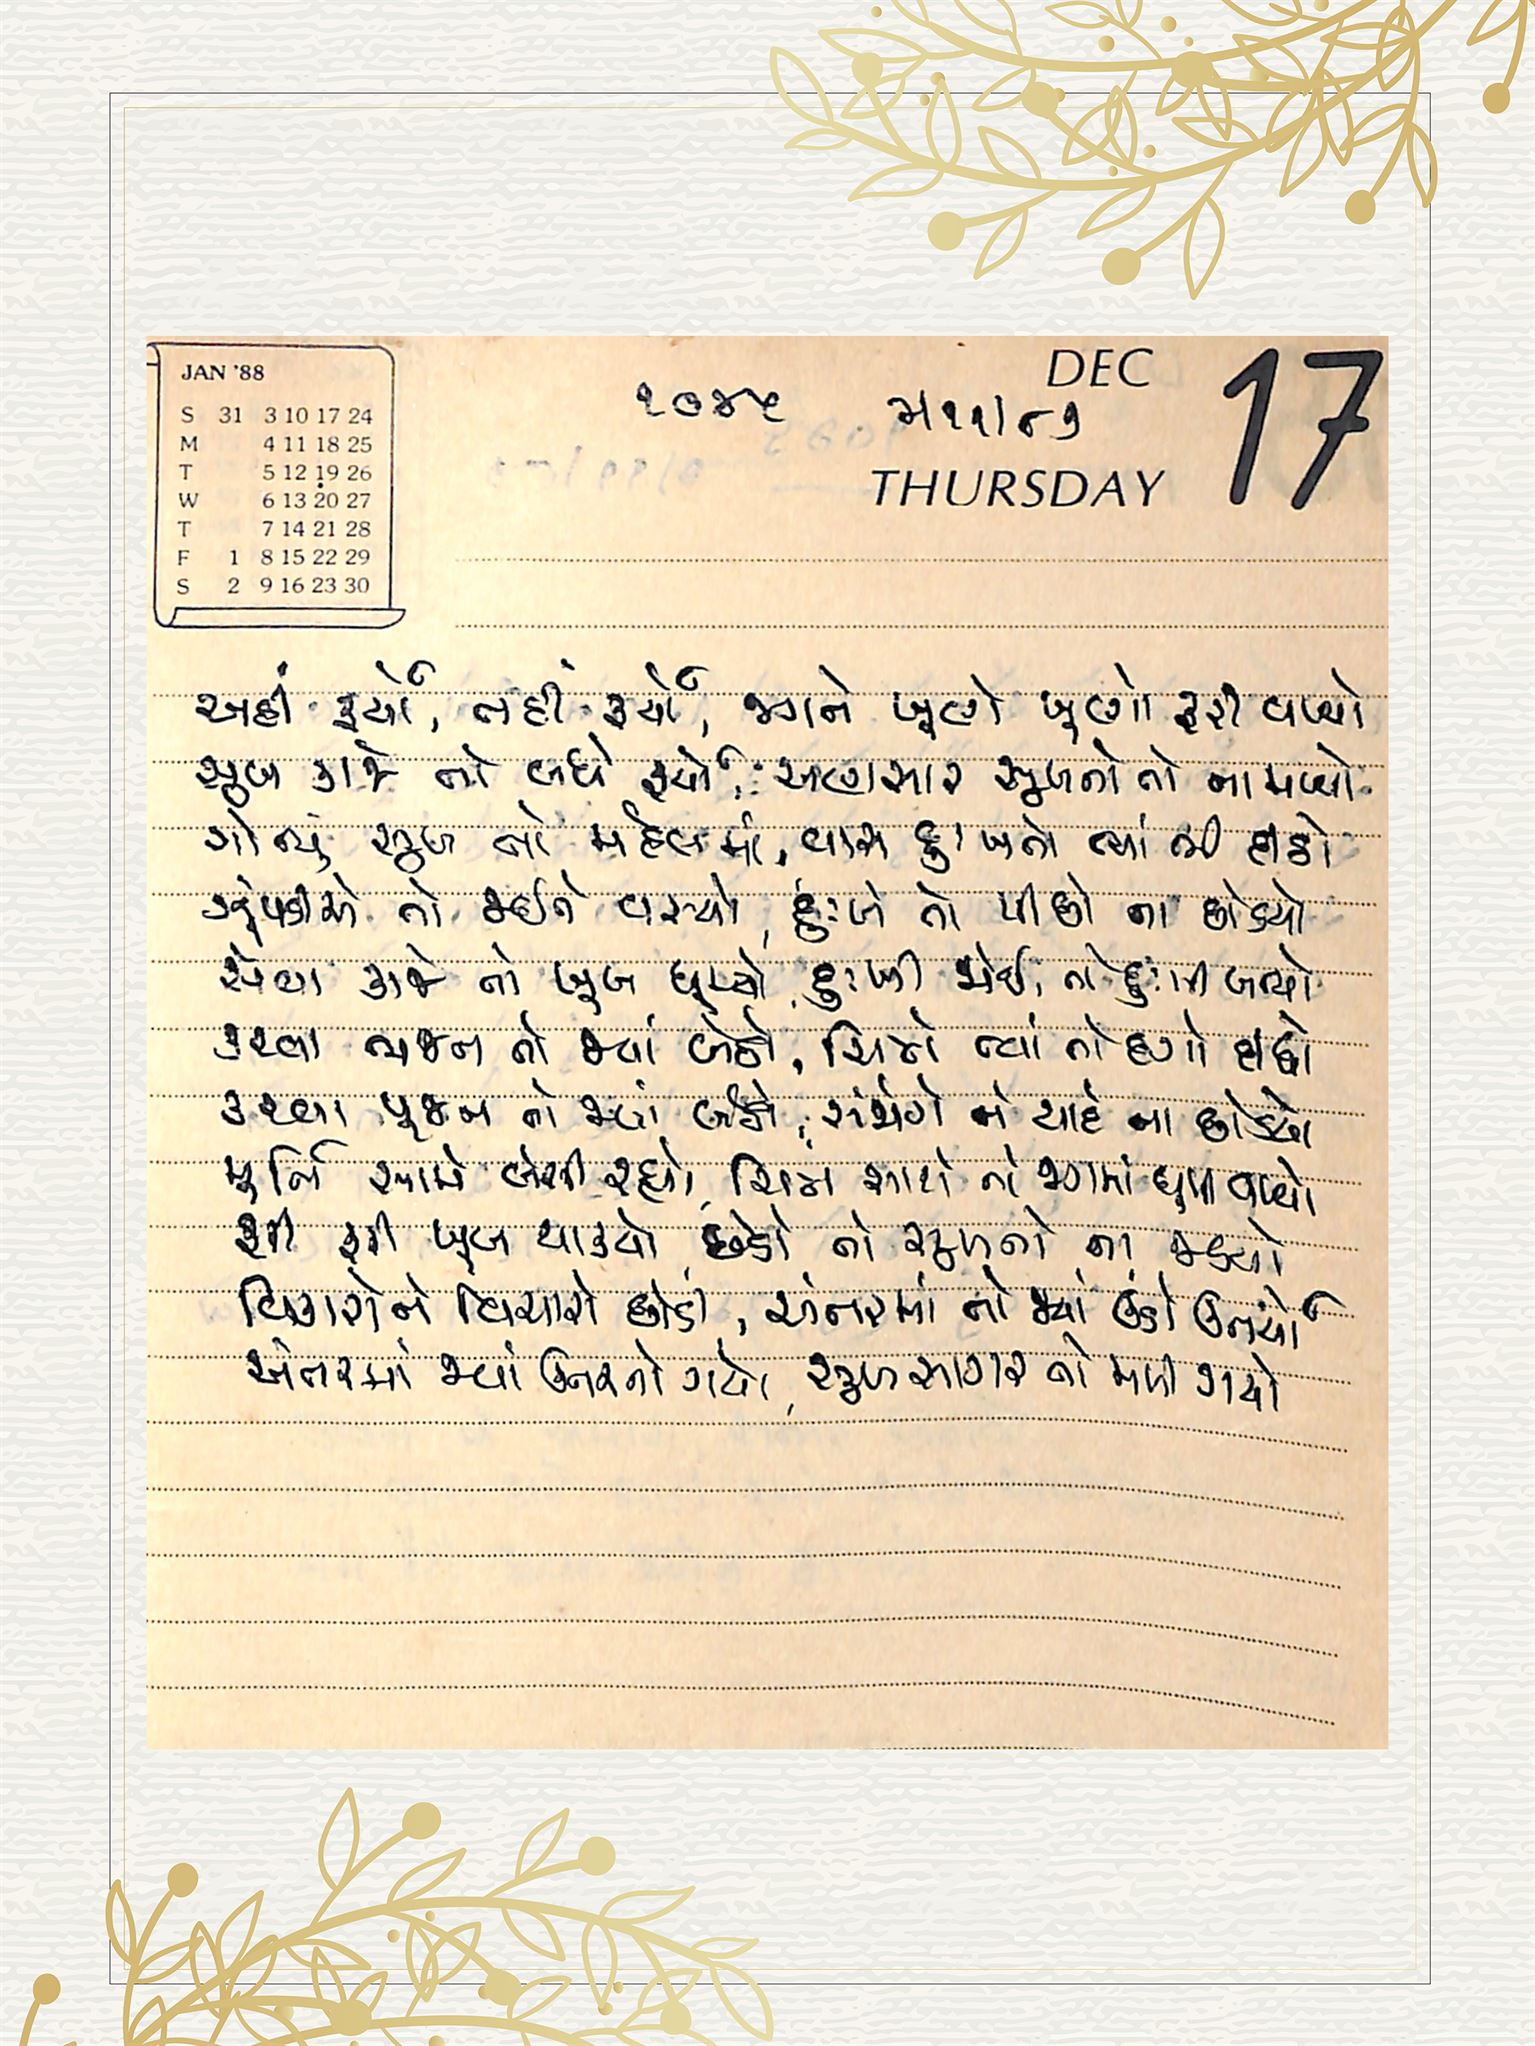 JAN '88
S 31 3 10 17 24
M 4 11 18 25
T 5 12 19 26
W 6 13 20 27
T 7 14 21 28
F 1 8 15 22 29
S 2 9 16 23 30
DEC 17
THURSDAY
અહીં ફર્યો, તહીં ફર્યો, જગને ખૂણે ખૂણો ફરી વળ્યો
સુખ કાજે તો બધે ફર્યો, અણસાર સુખનો તો ના મળ્યો
ગોત્યું સુખ તો મહેલમાં, વાસ દુઃખનો ત્યાં ભી
ઝૂંપડીએ તો જઈને વસ્યો, દુઃખે તો પીછો ના છોડયો
સેવા કાજે તો ખૂબ ઘૂમ્યો, દુઃખી જોઈ, તો દુઃખી બન્યો
કરવા ભજન તો જ્યાં બેઠો, ચિત્તે ત્યાં તો દગો દીધો
કરવા પૂજન તો જ્યાં બેઠો, સંજોગે તો યાદે ના છોડયો
મૂર્તિ સામે બેસી રહ્યો, ચિત્ત સાથે તો જગમાં ઘૂમી વળ્યો
ફરી ફરી ખૂબ થાકયો, છેડો તો સુખનો ના જડયો
વિકારો ને વિચારો છોડી, અંતરમાં તો જ્યાં ઉંડો ઉતર્યો
અંતરમાં જ્યાં ઉતરતો ગયો, સુખસાગર તો મળી ગયો